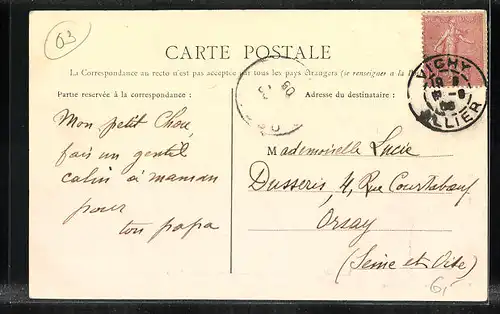 03
CARTE POSTALE
La Correspondance au recto n'est pas acceptée par tous les pays étrangers (se renseigner à la
Partie réservée à la correspondance :
Adresse du destinataire :
VICHY
ALLIER
Mon petit Chou,
fais un gentil
calin à maman
pour
ton papa
Mademoiselle Lucie
Dusseris, 4, Rue Courtabœuf
Orsay
(Seine et Oise)
6,-